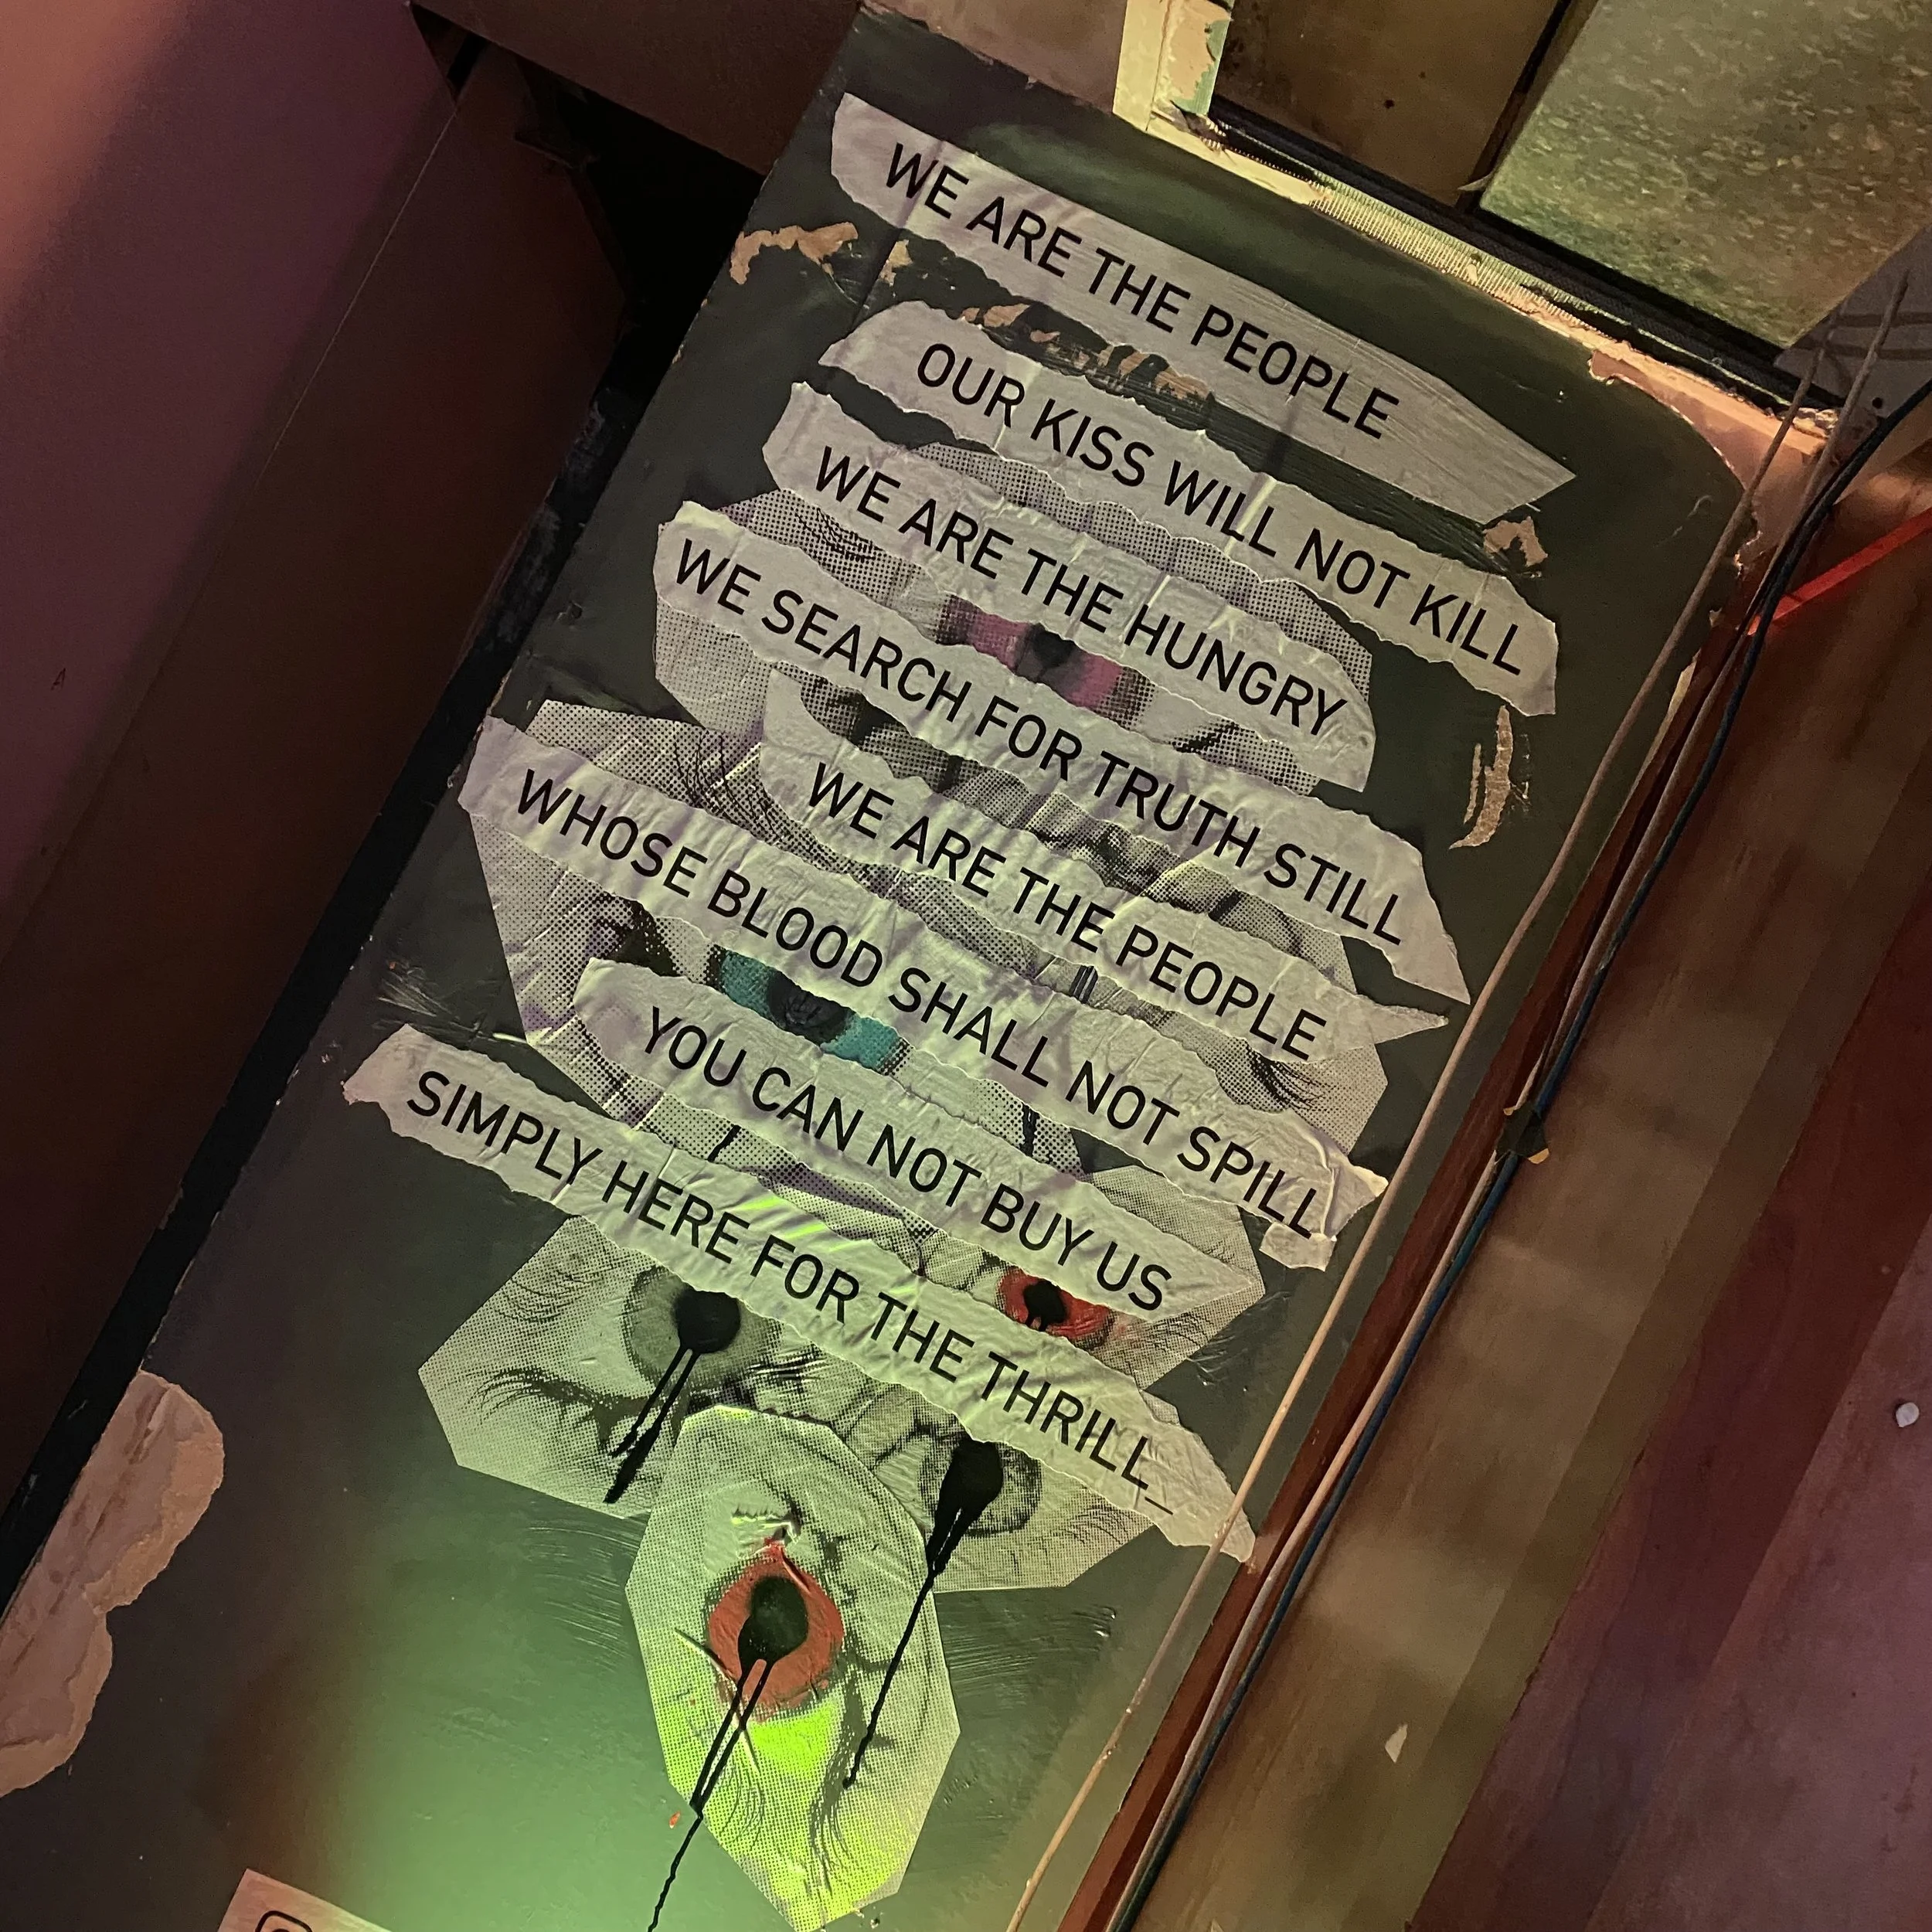 WE ARE THE PEOPLE
OUR KISS WILL NOT KILL
WE ARE THE HUNGRY
WE SEARCH FOR TRUTH STILL
WE ARE THE PEOPLE
WHOSE BLOOD SHALL NOT SPILL
YOU CAN NOT BUY US
SIMPLY HERE FOR THE THRILL_